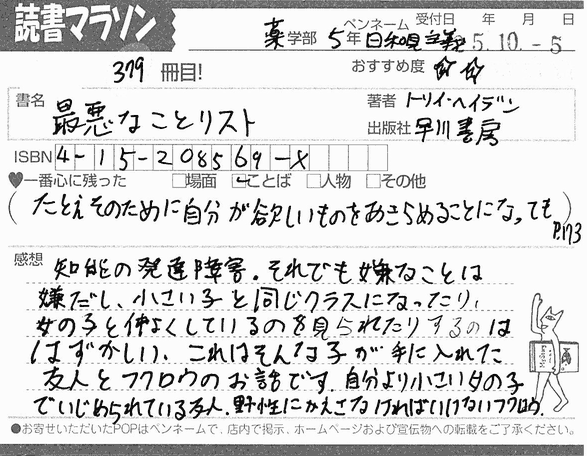 読書マラソン
薬学部 5年 ペンネーム 日和見主義 受付日 年 月 日 5.10.-5
379冊目! おすすめ度 ☆☆
書名 最悪なことリスト
著者 トリイ・ヘイデン
出版社 早川書房
ISBN 4-15-208569-X
♥一番心に残った □場面 ☑ことば □人物 □その他
(たとえそのために自分が欲しいものをあきらめることになっても) P.173
感想 知能の発達障害。それでも嫌なことは
嫌だし、小さい子と同じクラスになったり、
女の子と仲よくしているのを見られたりするのは
はずかしい、これはそんな子が手に入れた
友人とフクロウのお話です。自分より小さい女の子
でいじめられている友人、野性にかえさなければいけないフクロウ.
●お寄せいただいたPOPはペンネームで、店内で掲示、ホームページおよび宣伝物への転載をご了承ください。